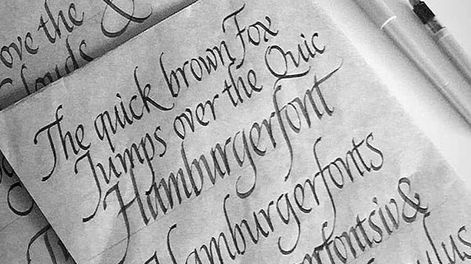 ove the
Clouds &
The quick brown Fox
Jumps over the Quic
Hamburgerfont
Hamburgerfonts
erfontsiv&
ulus